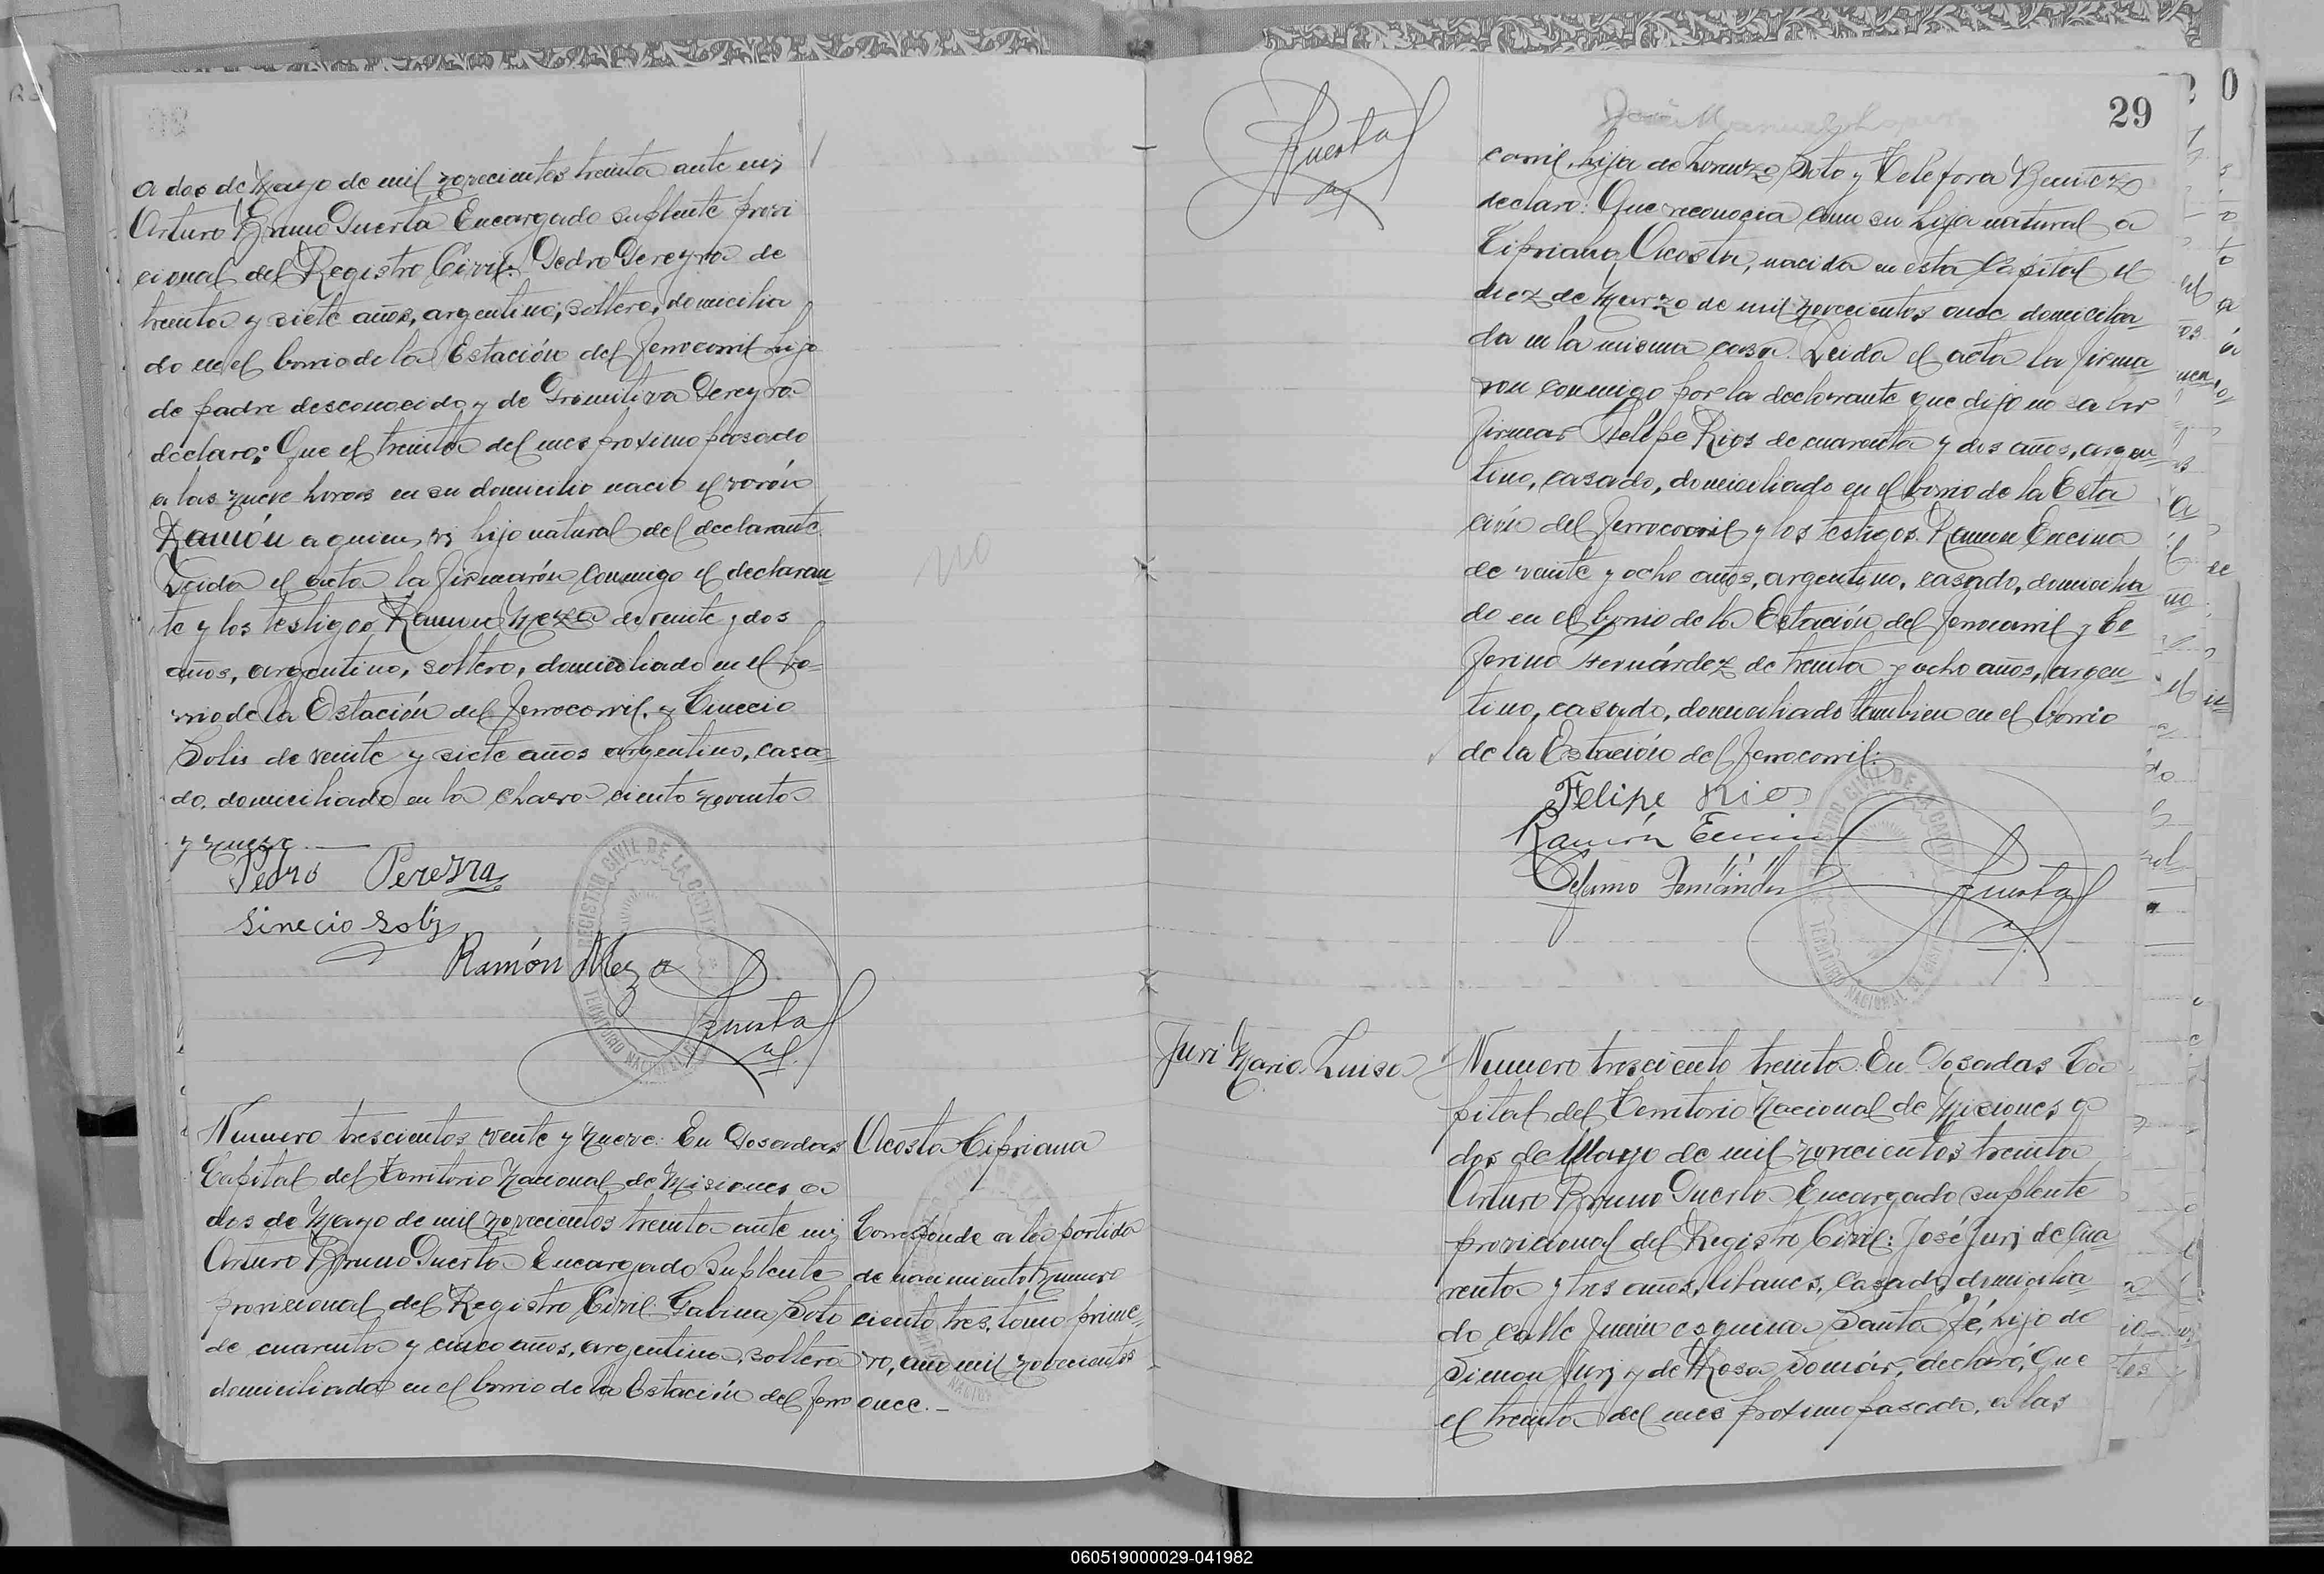 a dos de Mayo de mil novecientos treinta ante mi,
Arturo Bruno Puerta Encargado suplente provi
cional del Registro Civil: Pedro Pereyra de
treinta y siete años, argentino, soltero, domicilia
do en el barrio de la Estación del Ferrocarril hijo
de padre desconocido y de Primitiva Pereyra
declaro: Que el treinta del mes proximo pasado
a las nueve horas en su domicilio nació el varón
Ramón a quien vi hijo natural del declarante.
Leida el acta la firmarón conmigo el declaran
te y los testigos Ramon Meza de veinte y dos
años, argentino, soltero, domiciliado en el ba-
rrio de la Estación del Ferrocarril, y Cinecio
Solis de veinte y siete años argentino, casa-
do, domiciliado en la chacra ciento noventa
y nueve.
Pedro Pereyra
Sinecio Solis
Ramón Meza
Puerta
REGISTRO CIVIL DE LA CAPITAL
TERRITORIO NACIONAL
no
Numero trescientos veinte y nueve: En Posadas
Capital del Territorio Nacional de Misiones a
dos de Mayo de mil novecientos treinta ante mi,
Arturo Bruno Puerta Encargado Suplente
provicional del Registro Civil: Gabina Soto
de cuarenta y cinco años, argentina, soltera
domiciliada en el barrio de la Estación del Ferro
Acosta Cipriana
Corresponde a la partida
de nacimiento Numero
ciento tres, tomo prime-
ro, año mil novecientos
once.-
Puerta
José Manuel
29
carril, hija de Lorenzo Soto y Telefora
declaro: Que reconocia como su hija natural a
Cipriana Acosta, nacida en esta Capital el
diez de Marzo de mil novecientos once domicilia
da en la misma casa. Leida el acta la firma
ron conmigo por la declarante que dijo no saber
firmar Felipe Rios de cuarenta y dos años, argen
tino, casado, domiciliado en el barrio de la Esta
ción del Ferrocarril y los testigos Ramon Encina
de veinte y ocho años, argentino, casado, domicilia
do en el barrio de la Estación del Ferrocarril y Ce
ferino Hernández de treinta y ocho años, argen-
tino, casado, domiciliado tambien en el barrio
de la Estación del Ferrocarril.
Felipe Rios
Ramón
Puerta
REGISTRO CIVIL DE LA CAPITAL
TERRITORIO NACIONAL
Juri Maria Luisa
Numero trescientos treinta: En Posadas Ca
pital del Territorio Nacional de Misiones a
dos de Mayo de mil novecientos treinta
Arturo Bruno Puerta Encargado suplente
provicional del Registro Civil: José Juri de cua
renta y tres años, libanés, casado, domicilia
do calle Junin esquina Santa Fé, hijo de
Simon Juri y de Rosa declaró: Que
el treinta del mes proximo pasado, a las
060519000029-041982